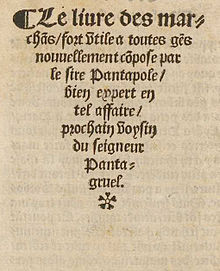 ¶Le liure des mar-
chãs/fort vtile a toutes gẽs
nouuellement cõpose par
le sire Pantapole/
bien expert en
tel affaire/
prochain voysin
du seigneur
Panta-
gruel.